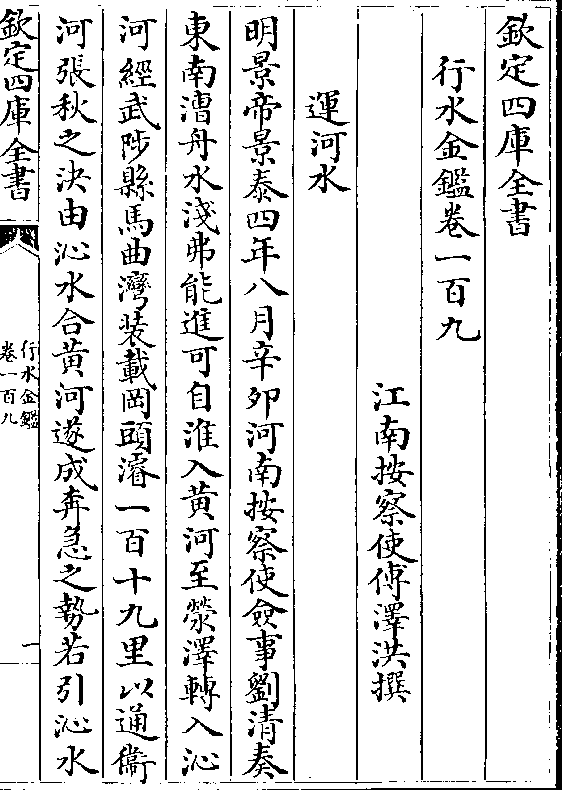 欽定四庫全書
行水金鑑卷一百九
江南按察使傅澤洪撰
運河水
明景帝景泰四年八月辛卯河南按察使僉事劉清奏
東南漕舟水淺弗能進可自淮入黄河至滎澤轉入沁
河經武陟縣馬曲灣装載岡頭濬一百十九里以通衞
河張秋之決由沁水合黄河遂成奔急之勢若引沁水
欽定四庫全書
行水金鑑
卷一百九
一